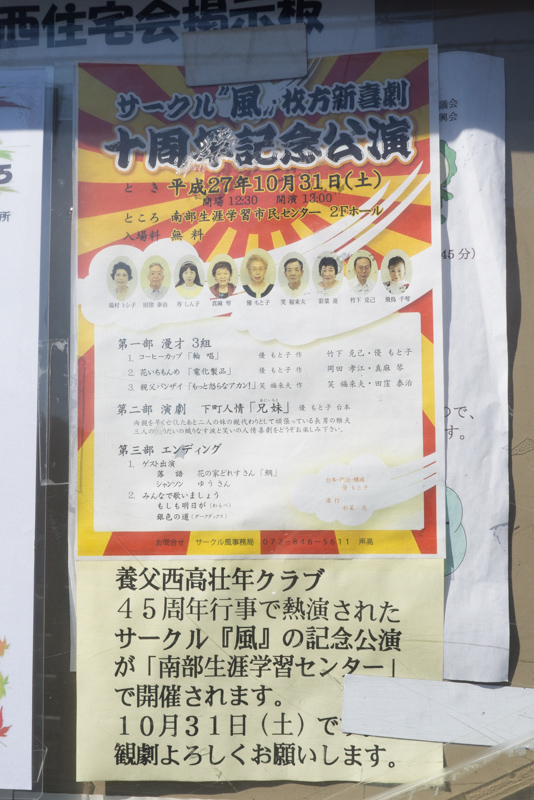 西住宅会掲示板
サークル"風"枚方新喜劇
十周年記念公演
とき 平成27年10月31日(土)
開場 12:30 開演 13:00
ところ 南部生涯学習市民センター 2Fホール
入場料 無料
第一部 漫才 3組
1. コーヒーカップ「輪唱」 優 もと子 作 竹下 克己・優 もと子
2. 花いちもんめ「電化製品」 優 もと子 作 岡田 孝江・真麻 琴
3. 親父バンザイ「もっと怒らなアカン!」 笑 福来夫 作 笑 福来夫・田窪 泰治
第二部 演劇 下町人情「兄妹」 優 もと子 台本
第三部 エンディング
1. ゲスト出演
落語 花の家どれすさん「鯛」
シャンソン ゆうさん
2. みんなで歌いましょう
もしも明日が(わらべ)
銀色の道(ダークダックス)
お問合せ サークル風事務局
養父西高壮年クラブ
45周年行事で熱演された
サークル『風』の記念公演
が「南部生涯学習センター」
で開催されます。
10月31日(土)で
観劇よろしくお願いします。
45分)
す。